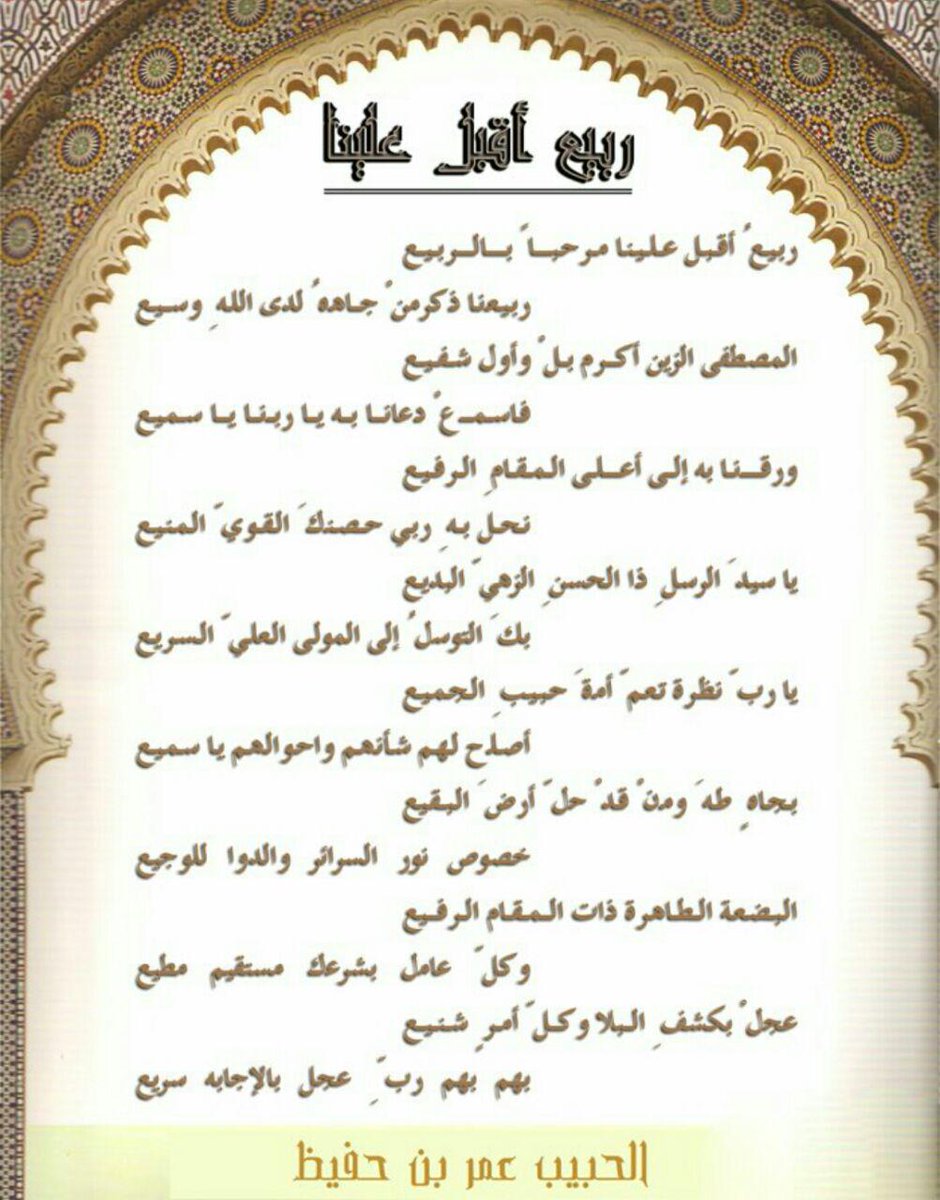 ربيع أقبل علينا
ربيعُ أقبل علينا مرحباً بالربيع
ربيعنا ذكر منْ جاههُ لدى اللهِ وسيع
المصطفى الزين أكرم بلْ وأول شفيع
فاسمعْ دعانا به يا ربنا يا سميع
ورقنا به إلى أعلى المقامِ الرفيع
نحل بهِ ربي حصنكَ القويّ المنيع
يا سيدَ الرسلِ ذا الحسنِ الزهيّ البديع
بكَ التوسلُ إلى المولى العليّ السريع
يا ربّ نظرة تعمّ أمةَ حبيبِ الجميع
أصلح لهم شأنهم واحوالهم يا سميع
بجاهِ طهَ ومنْ قدْ حلّ أرضَ البقيع
خصوص نور السرائر والدوا للوجيع
البضعة الطاهرة ذات المقام الرفيع
وكلّ عامل بشرعك مستقيم مطيع
عجلْ بكشفِ البلا وكلّ أمرٍ شنيع
بهم بهم ربِّ عجل بالإجابه سريع
الحبيب عمر بن حفيظ